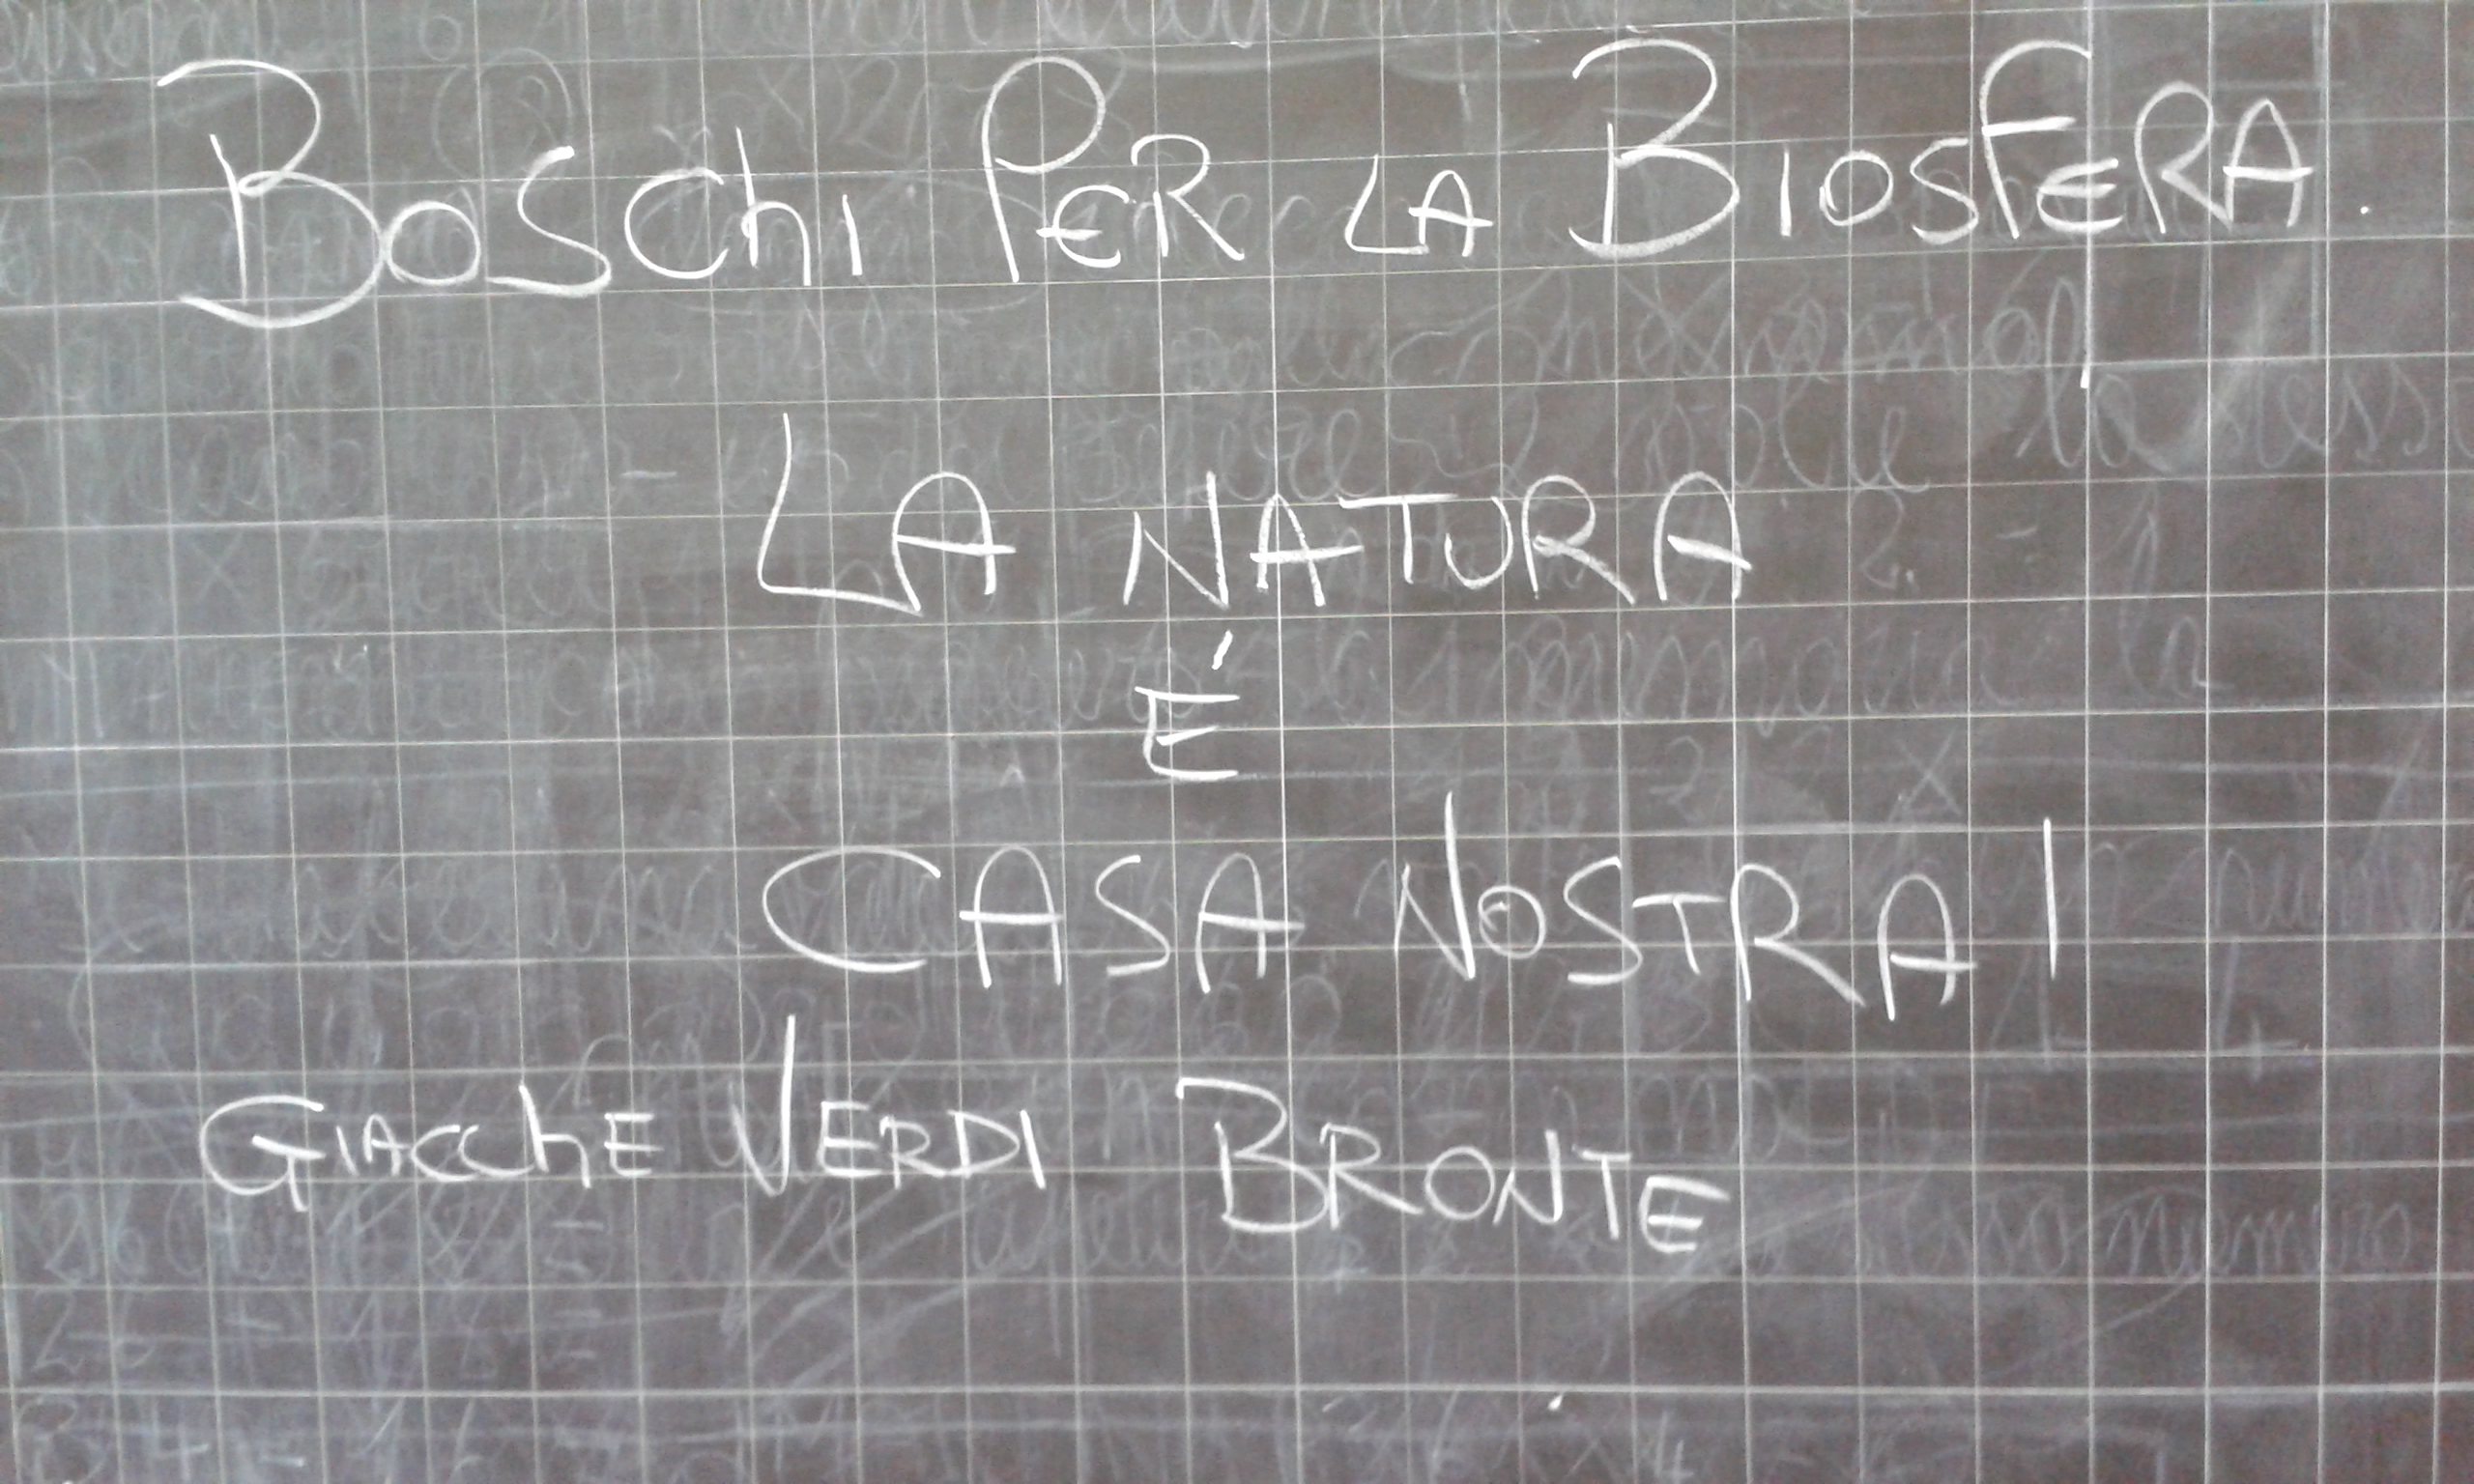 BOSChI PER LA BIOSFERA.
LA NATURA
É
CASA NOSTRA!
GIACChE VERDI BRONTE